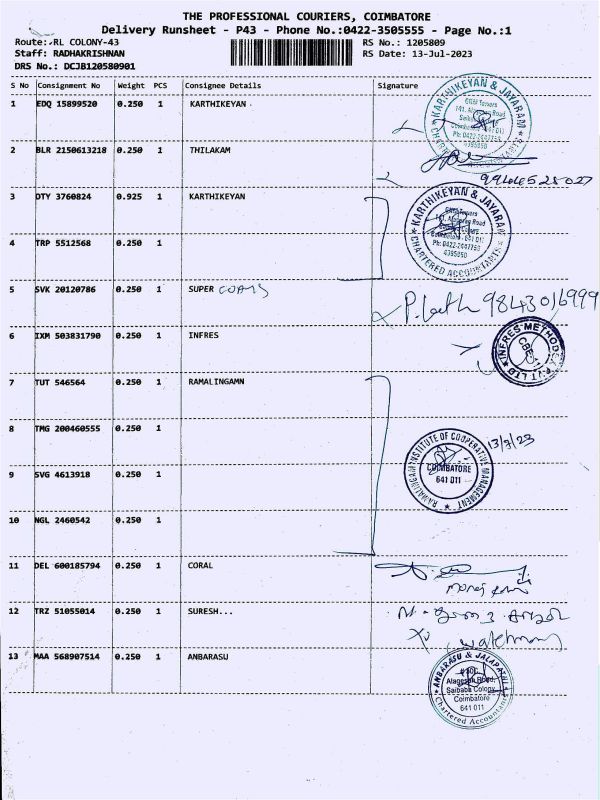 THE PROFESSIONAL COURIERS, COIMBATORE
Delivery Runsheet - P43 - Phone No.:0422-3505555 - Page No.:1
Route: RL COLONY-43
RS No.: 1205809
Staff: RADHAKRISHNAN
RS Date: 13-Jul-2023
DRS No.: DCJB120580901
S No Consignment No Weight PCS Consignee Details Signature
1 EDQ 15899520 0.250 1 KARTHIKEYAN
KARTHIKEYAN & JAYARAM CHARTERED ACCOUNTANTS
2 BLR 2150613218 0.250 1 THILAKAM
9944528027
3 DTY 3760824 0.925 1 KARTHIKEYAN
KARTHIKEYAN & JAYARAM CHARTERED ACCOUNTANTS
Coimbatore - 641 011
Ph: 0422-2447750
4395050
4 TRP 5512568 0.250 1
5 SVK 20120786 0.250 1 SUPER
9843016999
6 IXM 503831790 0.250 1 INFRES
INFRES METHODEX PVT LTD
7 TUT 546564 0.250 1 RAMALINGAMN
8 TMG 200460555 0.250 1
RAMALINGAM INSTITUTE OF COOPERATIVE MANAGEMENT
COIMBATORE
641 011
13/7/23
9 SVG 4613918 0.250 1
10 NGL 2460542 0.250 1
11 DEL 600185794 0.250 1 CORAL
12 TRZ 51055014 0.250 1 SURESH...
watchman
13 MAA 568907514 0.250 1 ANBARASU
ANBARASU & JALAPATHI
Alagesan Road,
Saibaba Colony
Coimbatore
641 011
Chartered Accountants